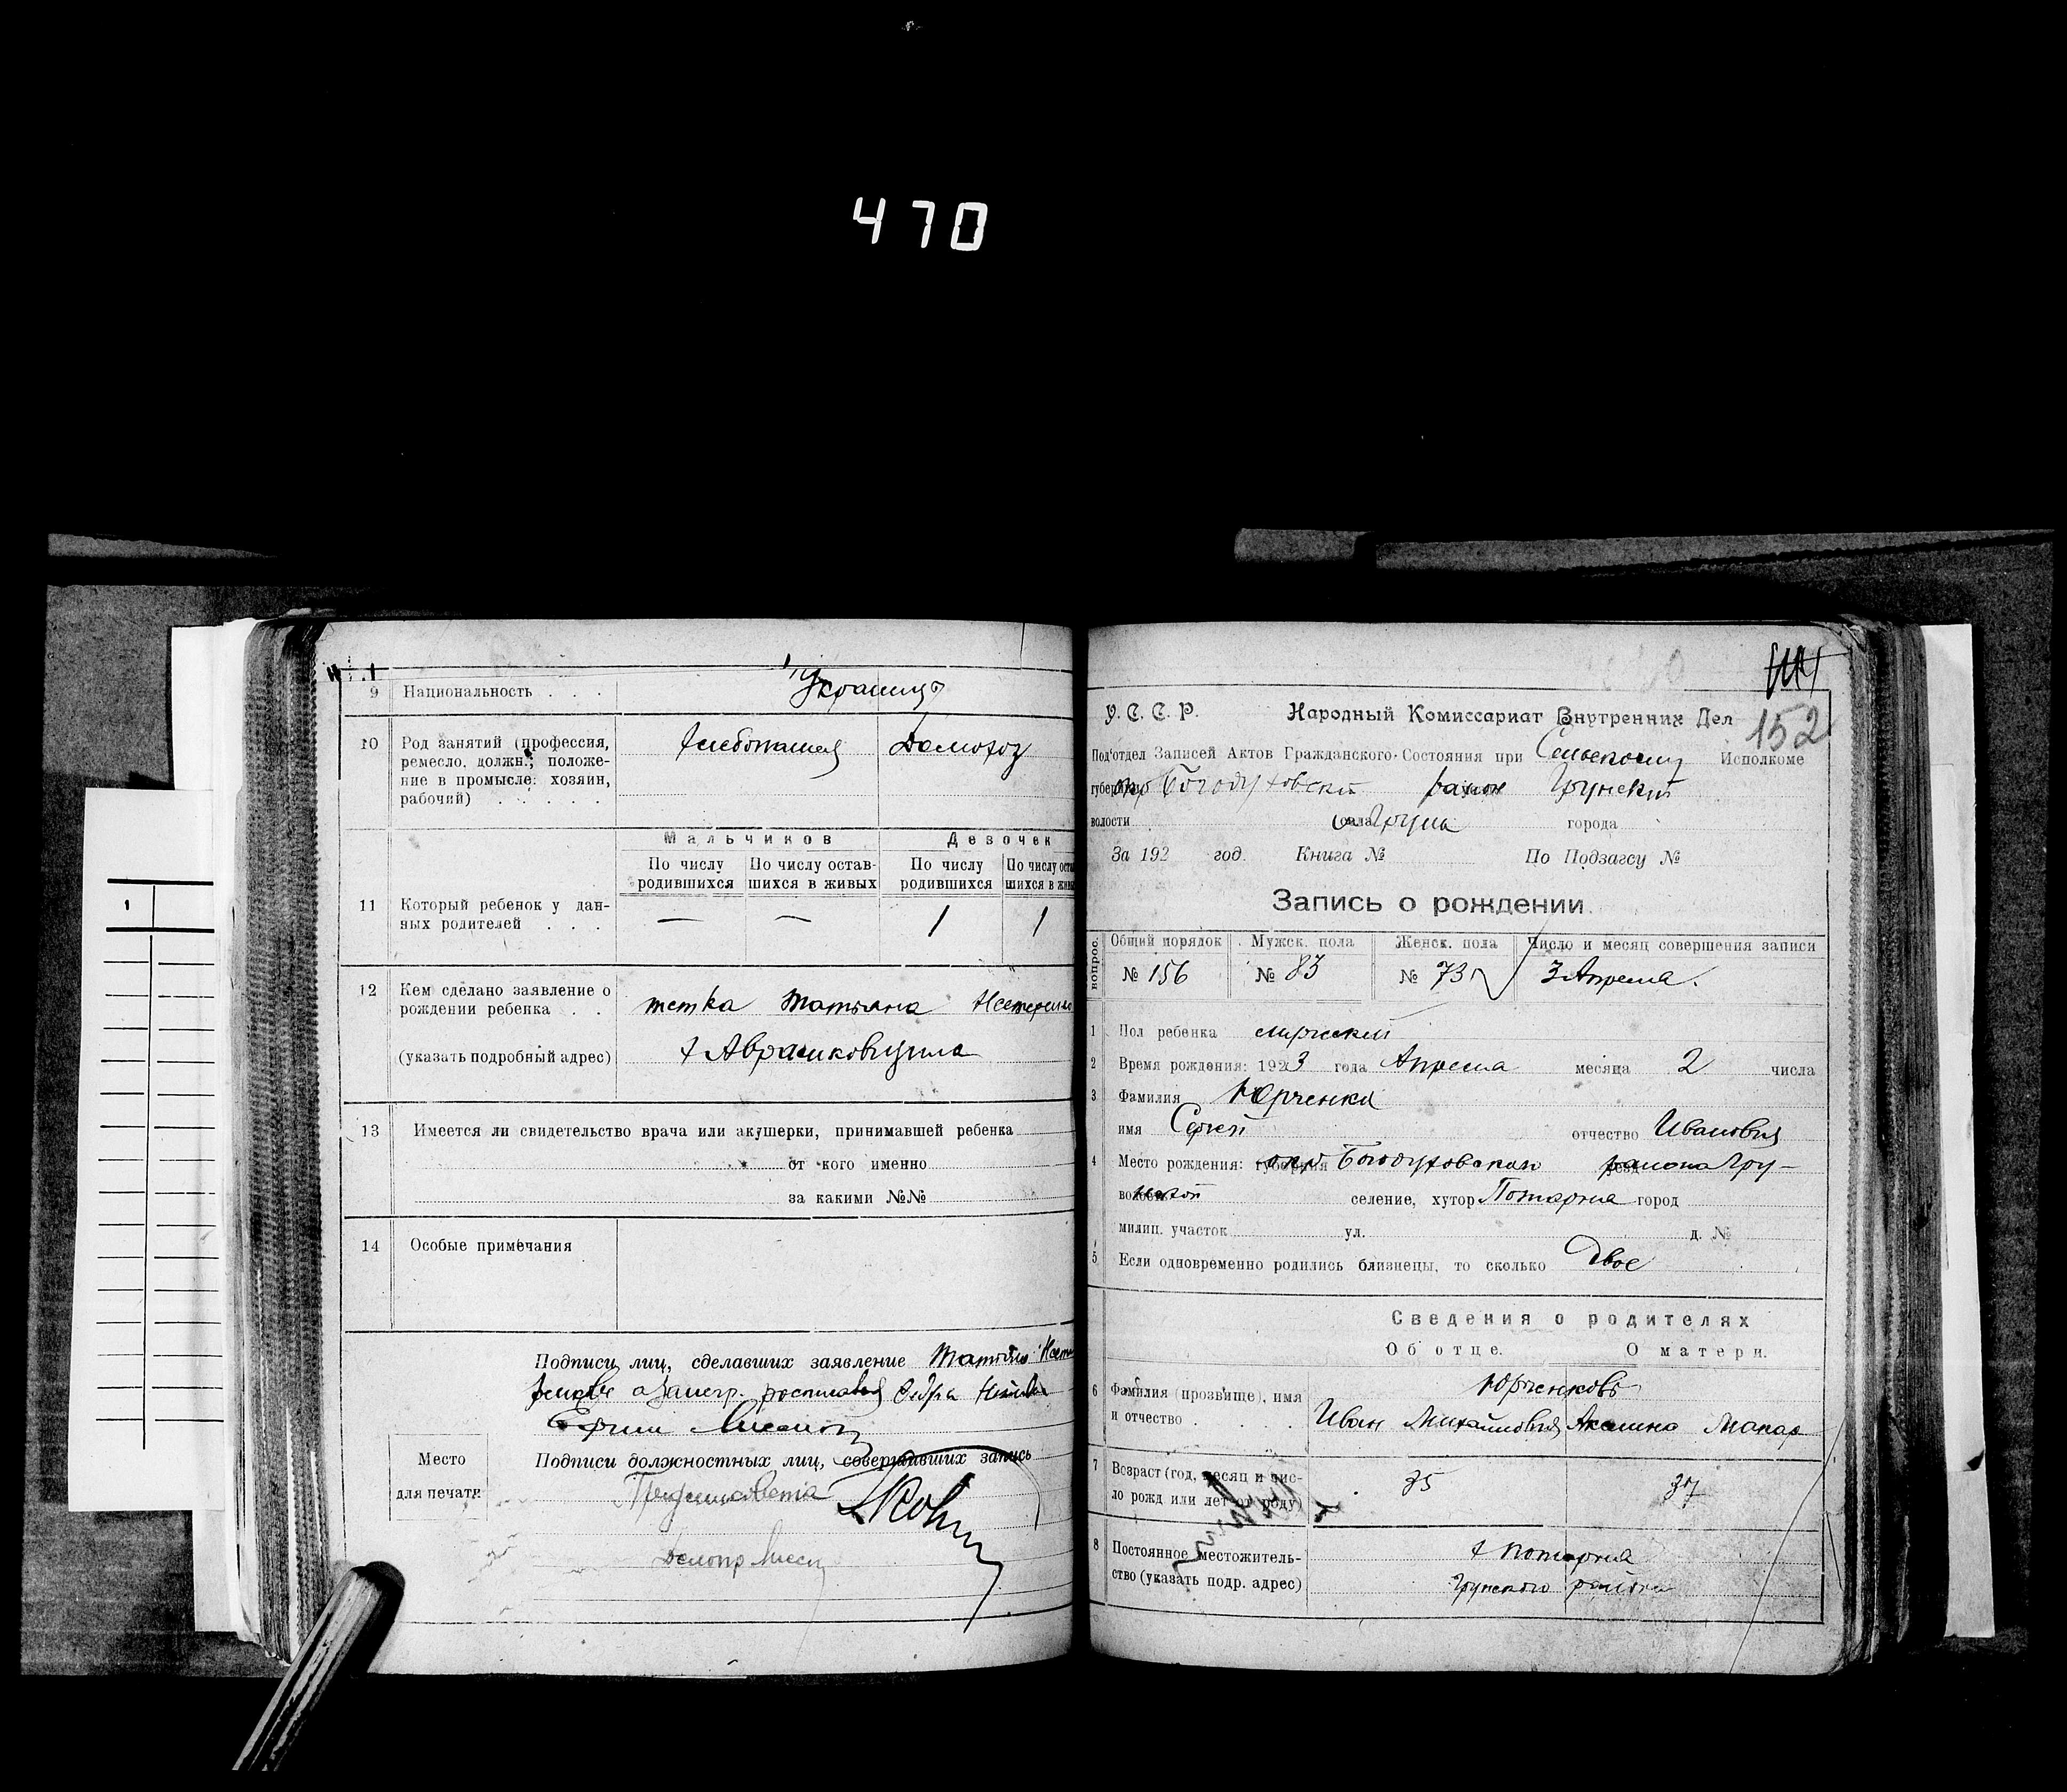 470
9 Национальность . . . Украинцы
10 Род занятий (профессия, Хлебопашец Домохоз
ремесло, должн.; положе-
ние в промысле: хозяин,
рабочий) . . . . .
Мальчиков Девочек
По числу По числу остав- По числу По числу оста
родившихся шихся в живых родившихся шихся в живы
11 Который ребенок у дан- — — 1 1
ных родителей . . .
12 Кем сделано заявление о тетка Татьяна
рождении ребенка . .
(указать подробный адрес) х Аврамковщина
13 Имеется ли свидетельство врача или акушерки, принимавшей ребенка
от кого именно
за какими №№
14 Особые примечания
Подписи лиц, сделавших заявление
Место Подписи должностных лиц, совершивших запись
для печати
152
У. С. С. Р. Народный Комиссариат Внутренних Дел
Под'отдел Записей Актов Гражданского Состояния при Исполкоме
губернии окр Богодуховский район Грунский
волости села Грунь города
За 192 год. Книга № По Подзагсу №
Запись о рождении
вопрос. Общий порядок Мужск. пола Женск. пола Число и месяц совершения записи
№ 156 № 83 № 73 3 Апреля.
1 Пол ребенка мужской
2 Время рождения: 1923 года Апреля месяца 2 числа
3 Фамилия Юрченко
имя Сергей отчество Иванович
4 Место рождения: губерния окр Богодуховская района Гру-
волость нской селение, хутор Потарня город
милиц. участок ул. д. №
5 Если одновременно родились близнецы, то сколько Двое
Сведения о родителях
Об отце. О матери.
6 Фамилия (прозвище), имя Юрченковы
и отчество . . . Иван Михайлович Акелина Макар
7 Возраст (год, месяц и чис- 35 37
ло рожд или лет от роду)
8 Постоянное местожитель- х Потарня
ство (указать подр. адрес) Грунского района